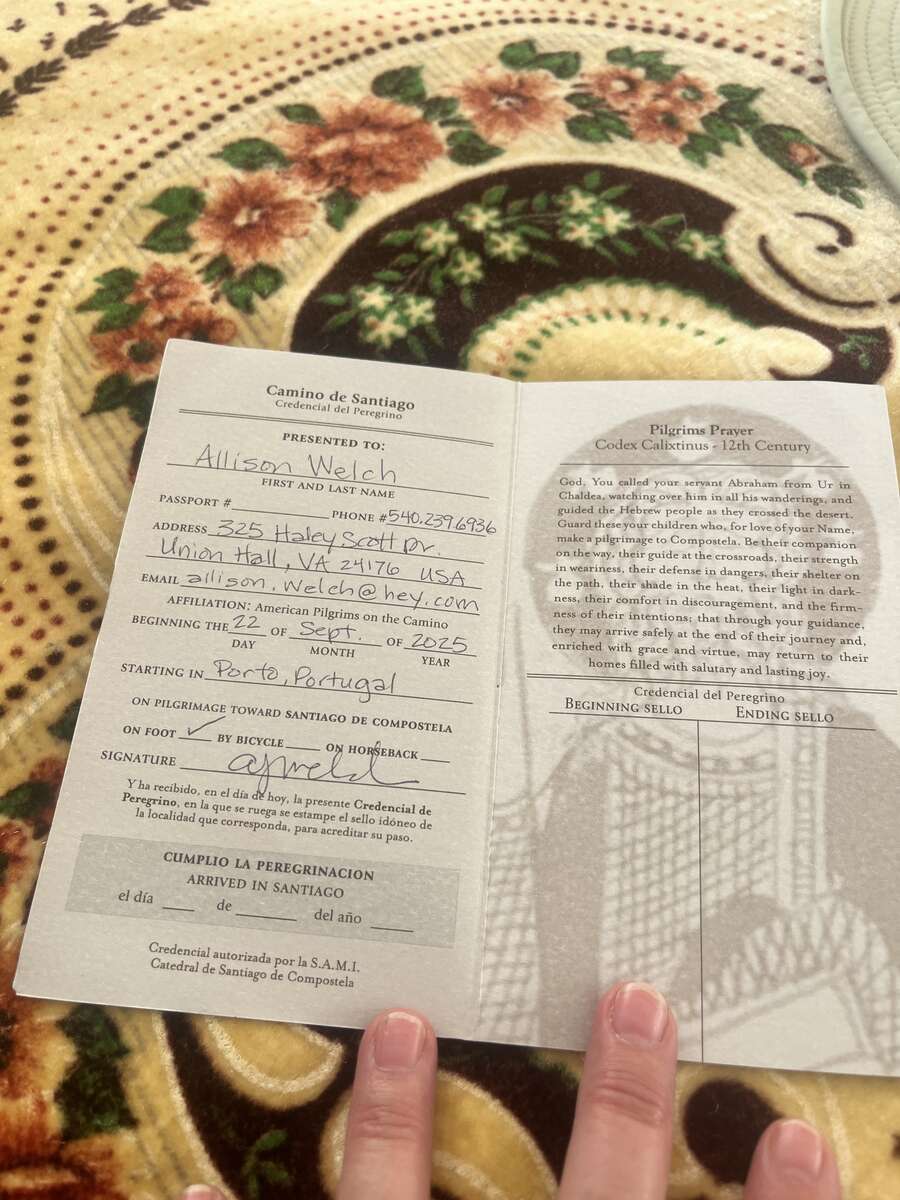 Camino de Santiago
Credencial del Peregrino
PRESENTED TO:
Allison Welch
FIRST AND LAST NAME
PASSPORT # PHONE # 540.239.6936
ADDRESS 325 Haley Scott Dr.
Union Hall, VA 24176 USA
EMAIL allison.welch@hey.com
AFFILIATION: American Pilgrims on the Camino
BEGINNING THE 22 OF Sept. OF 2025
DAY MONTH YEAR
STARTING IN Porto, Portugal
ON PILGRIMAGE TOWARD SANTIAGO DE COMPOSTELA
ON FOOT ✓ BY BICYCLE ON HORSEBACK
SIGNATURE
Y ha recibido, en el día de hoy, la presente Credencial de
Peregrino, en la que se ruega se estampe el sello idóneo de
la localidad que corresponda, para acreditar su paso.
CUMPLIO LA PEREGRINACION
ARRIVED IN SANTIAGO
el día de del año
Credencial autorizada por la S.A.M.I.
Catedral de Santiago de Compostela
Pilgrims Prayer
Codex Calixtinus - 12th Century
God, You called your servant Abraham from Ur in
Chaldea, watching over him in all his wanderings, and
guided the Hebrew people as they crossed the desert.
Guard these your children who, for love of your Name,
make a pilgrimage to Compostela. Be their companion
on the way, their guide at the crossroads, their strength
in weariness, their defense in dangers, their shelter on
the path, their shade in the heat, their light in dark-
ness, their comfort in discouragement, and the firm-
ness of their intentions; that through your guidance,
they may arrive safely at the end of their journey and,
enriched with grace and virtue, may return to their
homes filled with salutary and lasting joy.
Credencial del Peregrino
BEGINNING SELLO ENDING SELLO